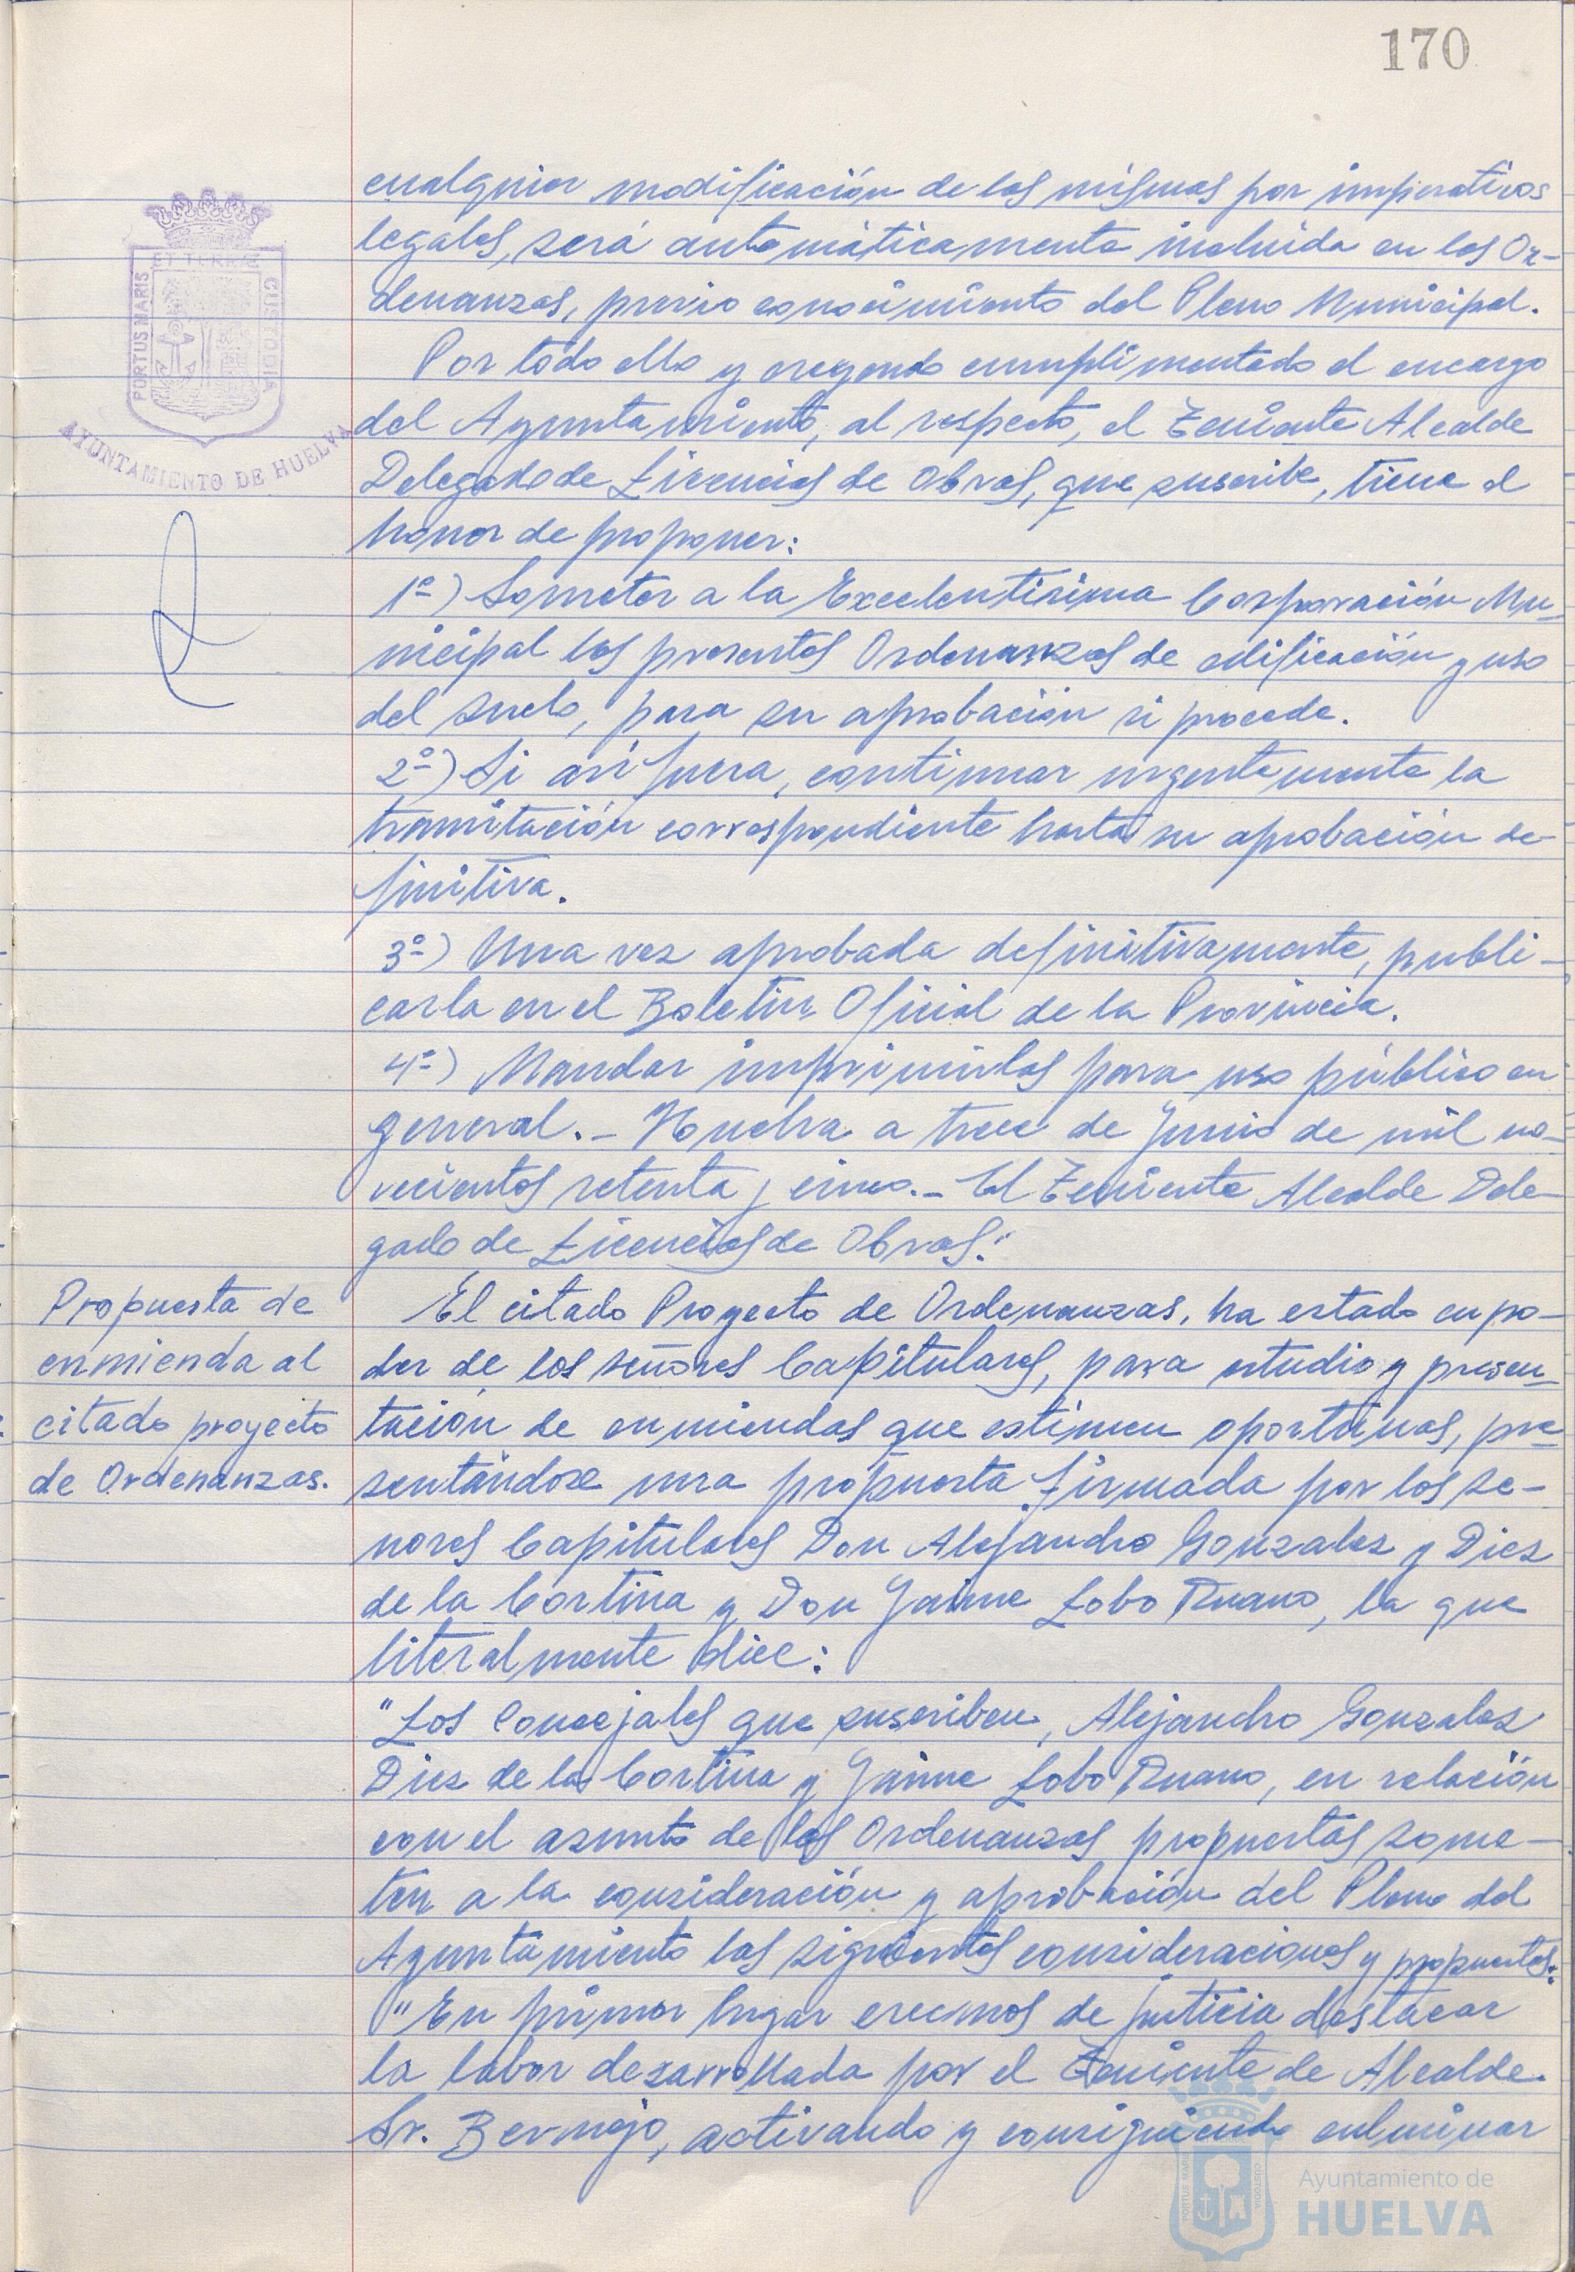 170
cualquier modificación de las mismas por imperativos
legales, será automáticamente incluida en las Or-
denanzas, previo conocimiento del Pleno Municipal.
Por todo ello y creyendo cumplimentado el encargo
del Ayuntamiento, al respecto, el Teniente Alcalde
Delegado de Licencias de Obras, que suscribe, tiene el
honor de proponer:
1º) Someter a la Excelentísima Corporación Mu-
nicipal las presentes Ordenanzas de edificación y uso
del suelo, para su aprobación si procede.
2º) Si así fuera, continuar urgentemente la
tramitación correspondiente hasta su aprobación de-
finitiva.
3º) Una vez aprobada definitivamente, publi-
carla en el Boletin Oficial de la Provincia.
4º) Mandar imprimirlas para uso público en
general.- Huelva a trece de Junio de mil no-
vecientos setenta y cinco.- El Teniente Alcalde Dele-
gado de Licencias de Obras."
Propuesta de
enmienda al
citado proyecto
de Ordenanzas.
El citado Proyecto de Ordenanzas, ha estado en po-
der de los señores Capitulares, para estudio y presen-
tación de enmiendas que estimen oportunas, pre-
sentándose una propuesta firmada por los se-
nores Capitulares Don Alejandro Gonzalez y Diez
de la Cortina y Don Jaime Lobo Ruano, la que
literalmente dice:
"Los Concejales que suscriben, Alejandro Gonzalez
Diez de la Cortina y Jaime Lobo Ruano, en relación
con el asunto de las Ordenanzas propuestas some-
ten a la consideración y aprobación del Pleno del
Ayuntamiento las siguientes consideraciones y propuestas:
"En primer lugar creemos de justicia destacar
la labor desarrollada por el Teniente de Alcalde.
Sr. Bermejo, activando y consiguiendo culminar
PORTUS MARIS
ET TERRAE
CUSTODIA
AYUNTAMIENTO DE HUELVA
Ayuntamiento de
HUELVA